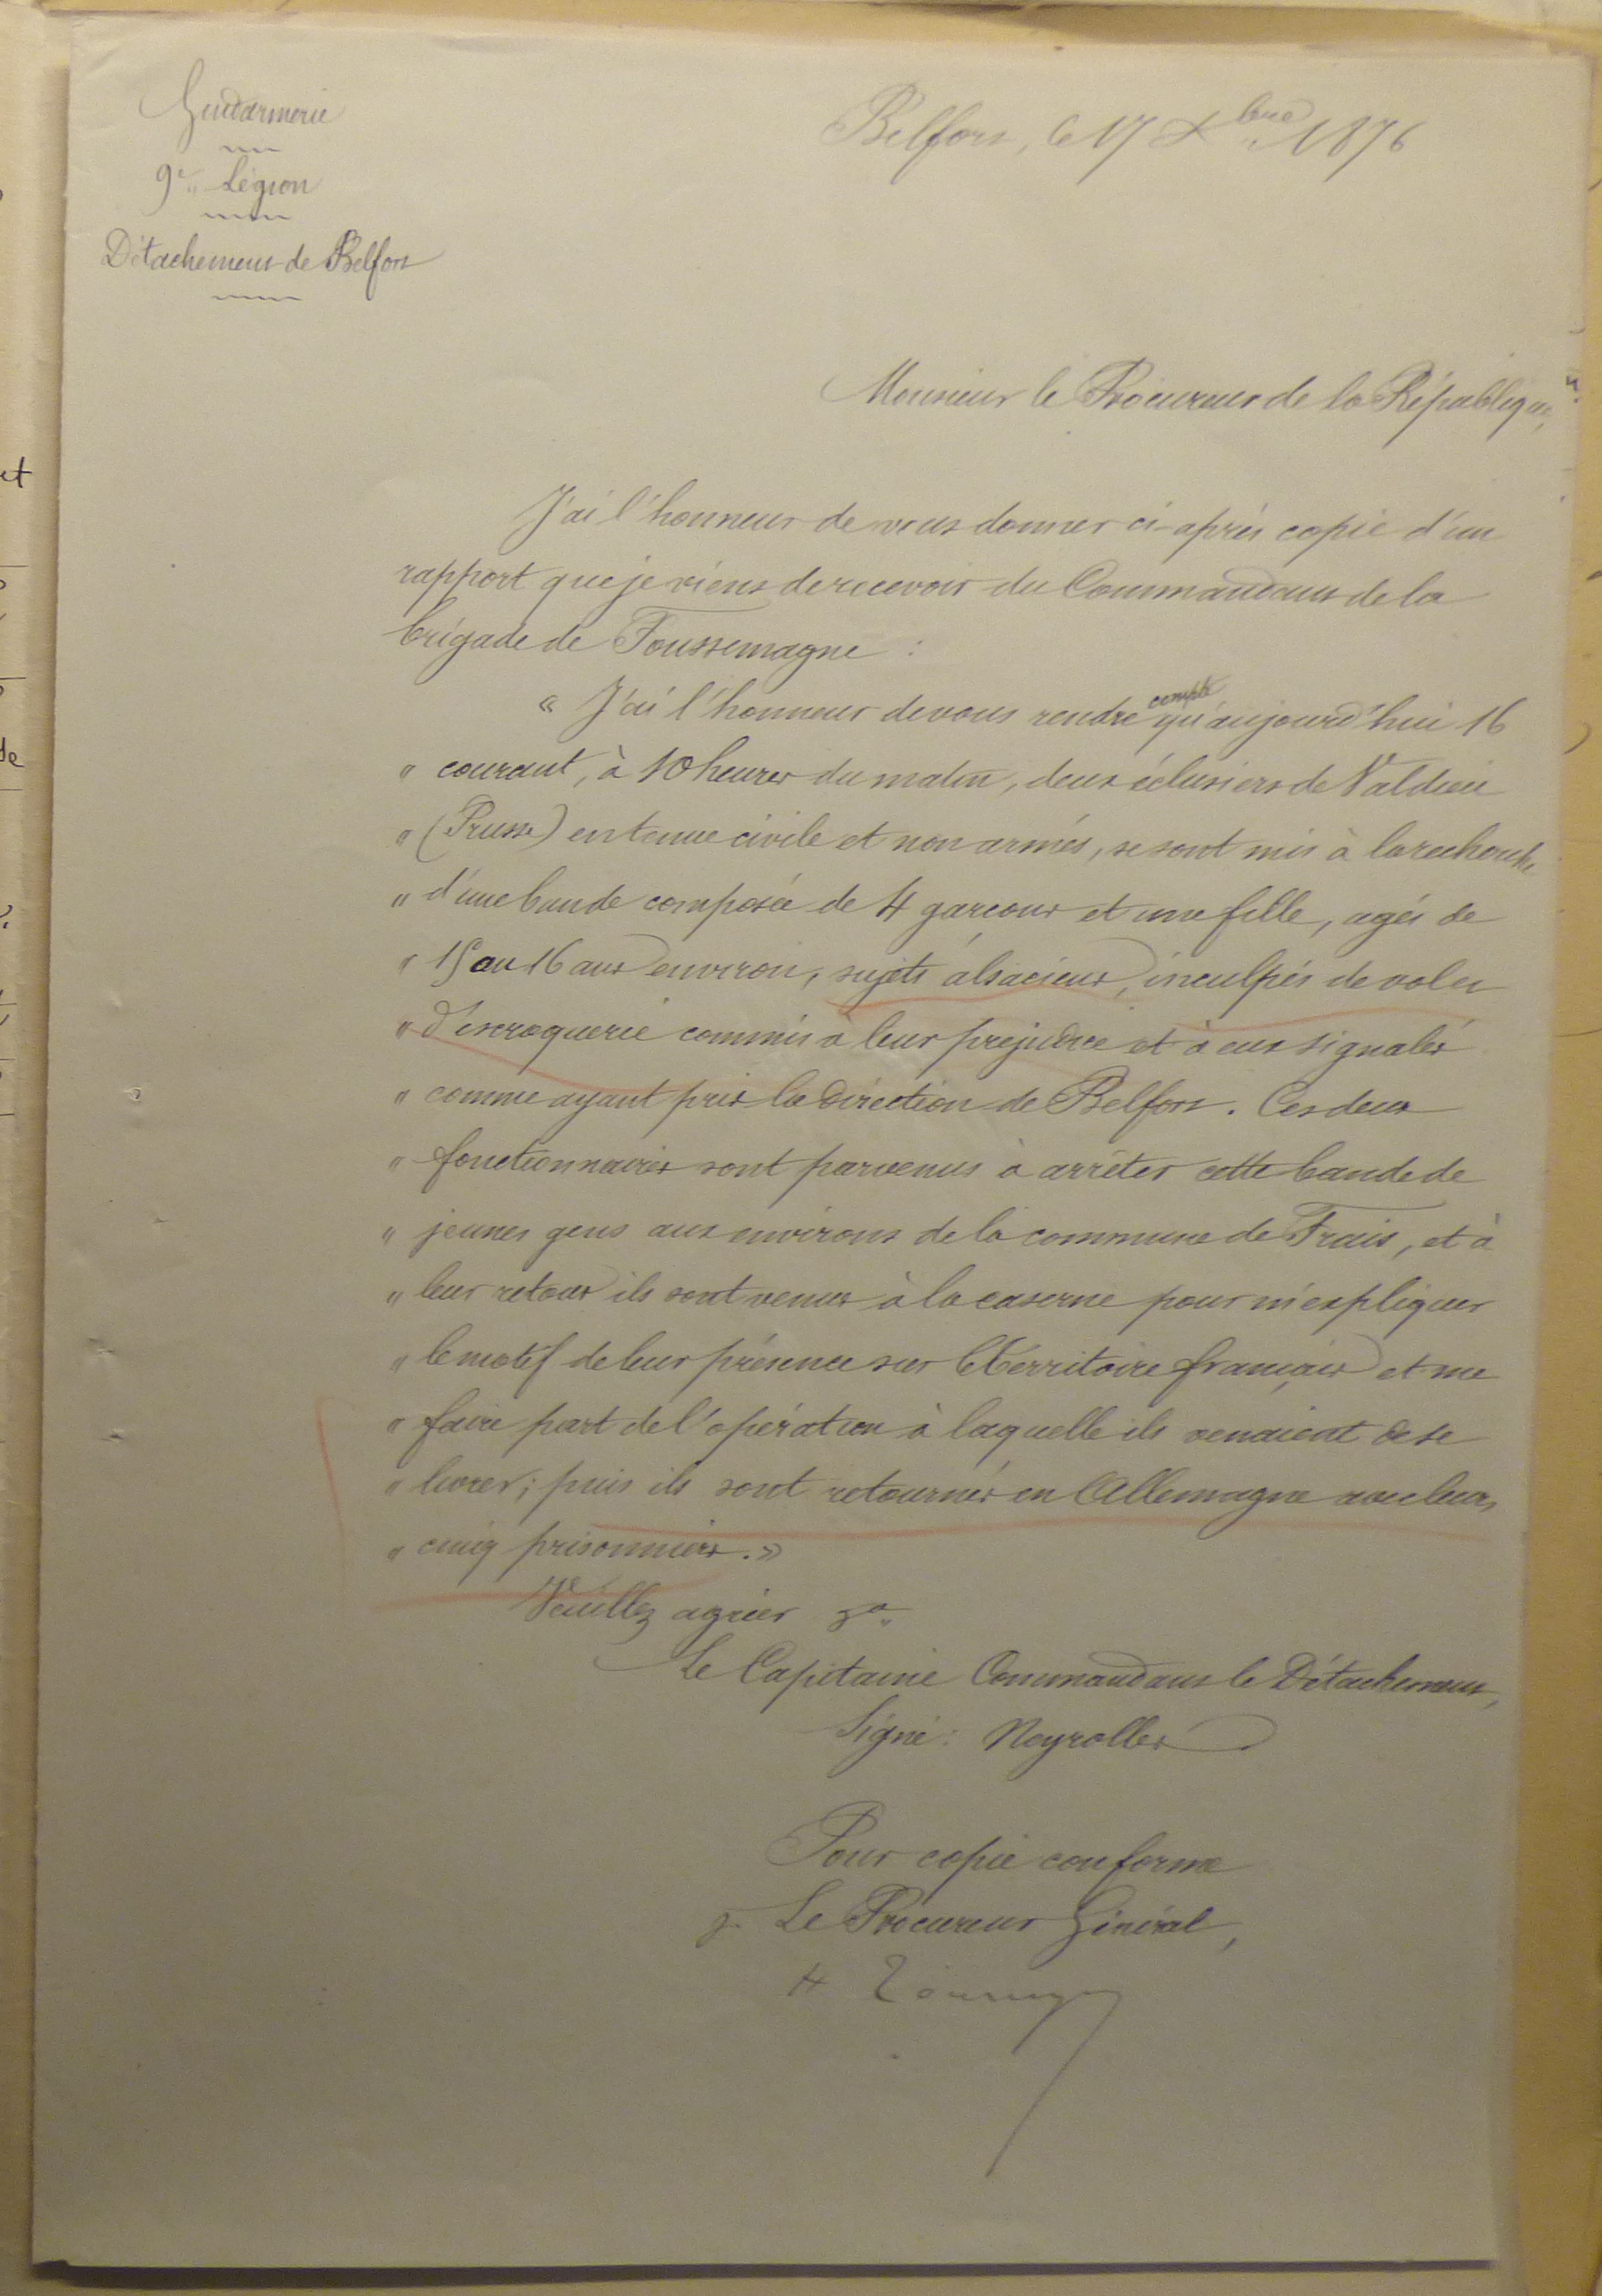 Gendarmerie
9e Légion
Détachement de Belfort
Belfort, le 17 Xbre 1876
Monsieur le Procureur de la République,
J'ai l'honneur de vous donner ci-après copie d'un
rapport que je viens de recevoir du Commandant de la
brigade de Foussemagne :
« J'ai l'honneur de vous rendre compte qu'aujourd'hui 16
" courant, à 10 heures du matin, deux éclusiers de Valdieu
" (Prusse) en tenue civile et non armés, se sont mis à la recherche
" d'une bande composée de 4 garçons et une fille, agés de
" 15 au 16 ans environ, sujets alsaciens, inculpés de vol et
" d'escroquerie commis à leur préjudice et à eux signalés
" comme ayant pris la direction de Belfort. Ces deux
" fonctionnaires sont parvenus à arrêter cette bande de
" jeunes gens aux environs de la commune de Frais, et à
" leur retour ils sont venus à la caserne pour m'expliquer
" le motif de leur présence sur le territoire français et me
" faire part de l'opération à laquelle ils venaient de se
" livrer ; puis ils sont retournés en Allemagne avec leurs
" cinq prisonniers. »
Veuillez agréer &a
Le Capitaine Commandant le Détachement,
Signé : Neyrolles
Pour copie conforme
p. Le Procureur Général,
et
de